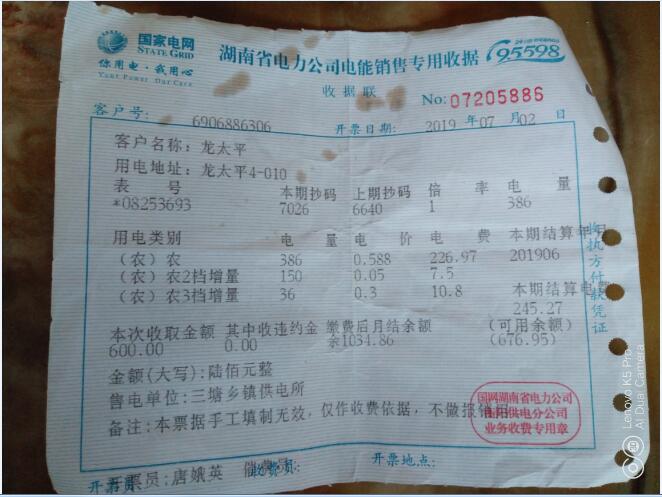 国家电网
STATE GRID
你用电·我用心
Your Power Our Care
湖南省电力公司电能销售专用收据
95598
收据联
No:07205886
客户号: 6906886306
开票日期: 2019 年 07 月 02 日
客户名称: 龙太平
用电地址: 龙太平4-010
表 号 本期抄码 上期抄码 倍 率 电 量
*08253693 7026 6640 1 386
用电类别 电 量 电 价 电 费 本期结算年月
(农)农 386 0.588 226.97 201906
(农)农2挡增量 150 0.05 7.5
(农)农3挡增量 36 0.3 10.8 本期结算电费
245.27
本次收取金额 其中收违约金 缴费后月结余额 (可用余额)
600.00 0.00 余1034.86 (676.95)
金额(大写): 陆佰元整
售电单位: 三塘乡镇供电所
备注: 本票据手工填制无效, 仅作收费依据, 不做报销用
国网湖南省电力公司
供电分公司
业务收费专用章
开票员: 唐娥英
收费员:
开票地点:
执方付款凭证
Lenovo K5 Pro
AI Dual Camera